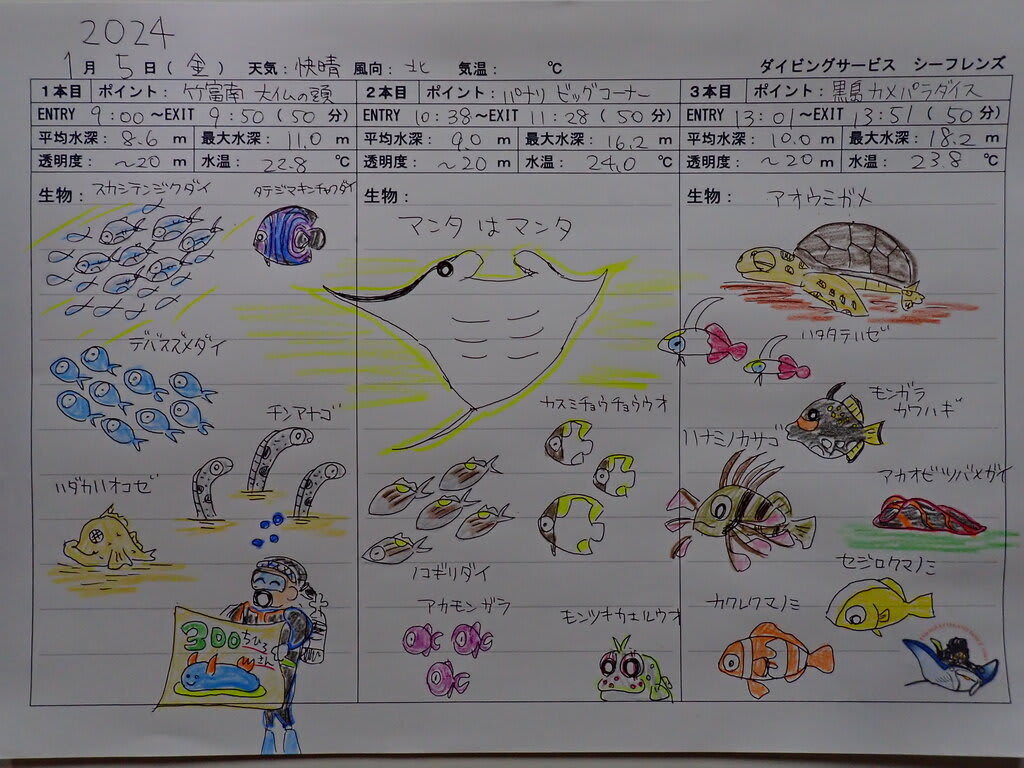 2024
1月 5日(金) 天気:快晴 風向:北 気温: ℃ ダイビングサービス シーフレンズ
1本目 ポイント:竹富南 大仏の頭
ENTRY 9:00~EXIT 9:50(50分)
平均水深:8.6 m 最大水深:11.0 m
透明度:~20 m 水温:22.8 ℃
生物:スカシテンジクダイ
タテジマキンチャクダイ
デバスズメダイ
チンアナゴ
ハダカハオコゼ
300
ちひろ
さん
2本目 ポイント:パナリ ビッグコーナー
ENTRY 10:38~EXIT 11:28(50分)
平均水深:9.0 m 最大水深:16.2 m
透明度:~20 m 水温:24.0 ℃
生物:
マンタ は マンタ
カスミチョウチョウウオ
ノコギリダイ
アカモンガラ
モンツキカエルウオ
3本目 ポイント:黒島 カメパラダイス
ENTRY 13:01~EXIT 13:51(50分)
平均水深:10.0 m 最大水深:18.2 m
透明度:~20 m 水温:23.8 ℃
生物:アオウミガメ
ハタタテハゼ
モンガラ
カワハギ
ハナミノカサゴ
アカオビツバメガイ
セジロクマノミ
カクレクマノミ